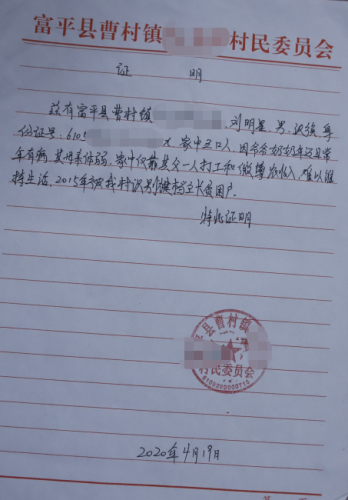 富平县曹村镇 村民委员会
证 明
兹有富平县曹村镇 刘明星、男、汉族、身
份证号:610 X 家中五口人,因令爷奶奶年迈且常
年有病,其母亲体弱,家中仅靠其父一人打工和微薄农收入,难以维
持生活,2015年被我村识别建档立卡贫困户。
特此证明
平县曹村镇
村民委员会
2020年4月19日